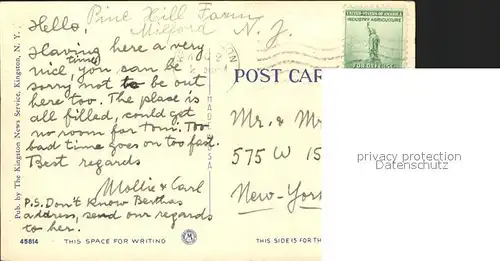 Pine Hill Farm
Milford N. J.
Hello,
Having here a very
nice time, you can be
sorry not to be out
here too. The place is
all filled, could get
no room for Tom. Too
bad time goes on too fast.
Best regards
Mollie & Carl
P.S. Don't know Berthas
address, send our regards
to her.
Pub. by The Kingston News Service, Kingston, N. Y.
45814
THIS SPACE FOR WRITING
MADE IN U.S.A.
POST CAR
UNITED STATES OF AMERICA
INDUSTRY AGRICULTURE
FOR DEFENSE
Mr. & Mr
575 W 15
New-York
THIS SIDE IS FOR TH
privacy protection
Datenschutz